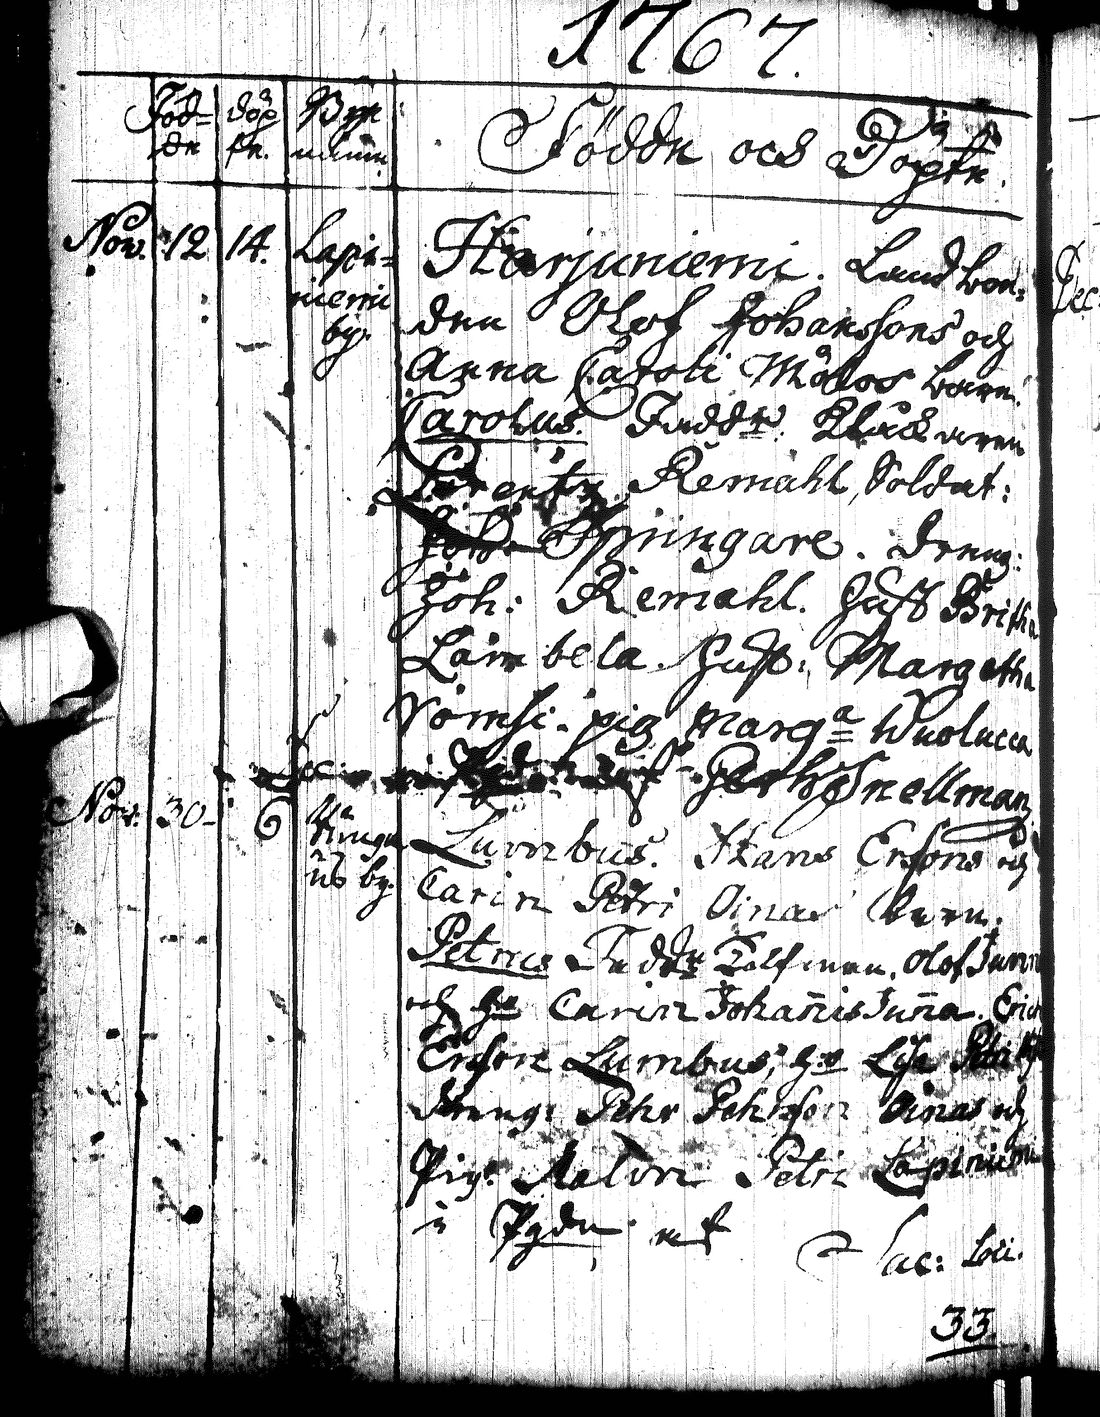 1767.
Föd= döp By
de te. namn. Födde och Döpte.
Nov. 12 14. Lapi= Harjuniemi. Landbon=
niemi den Olof Johanssons och
by. Anna Caroli Mådos barn.
Carolus. Faddr. Klåckaren
Lorentz Remahl, Soldat:
Joh: Springare. dreng:
Joh: Remahl. Hust Britha
Lambela. Hust: Margetha
Römsi. pig Marga Wuolucca
Per Snellman
Nov. 30 6 by. Lumbus. Hans Ersons och
Carin Petri Oinas barn.
Petrus Faddr Tolfman. Olof Junn
och hu Carin Johannis Junna. Erich
Erson Lumbus, hu Lisa Petri
dreng: Pehr Pehrson Oinas och
Pig: Malin Petri Lapiniemi
Sac: Loci.
33